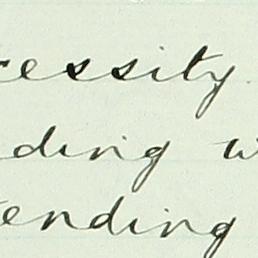 cessity.
ding w
ending